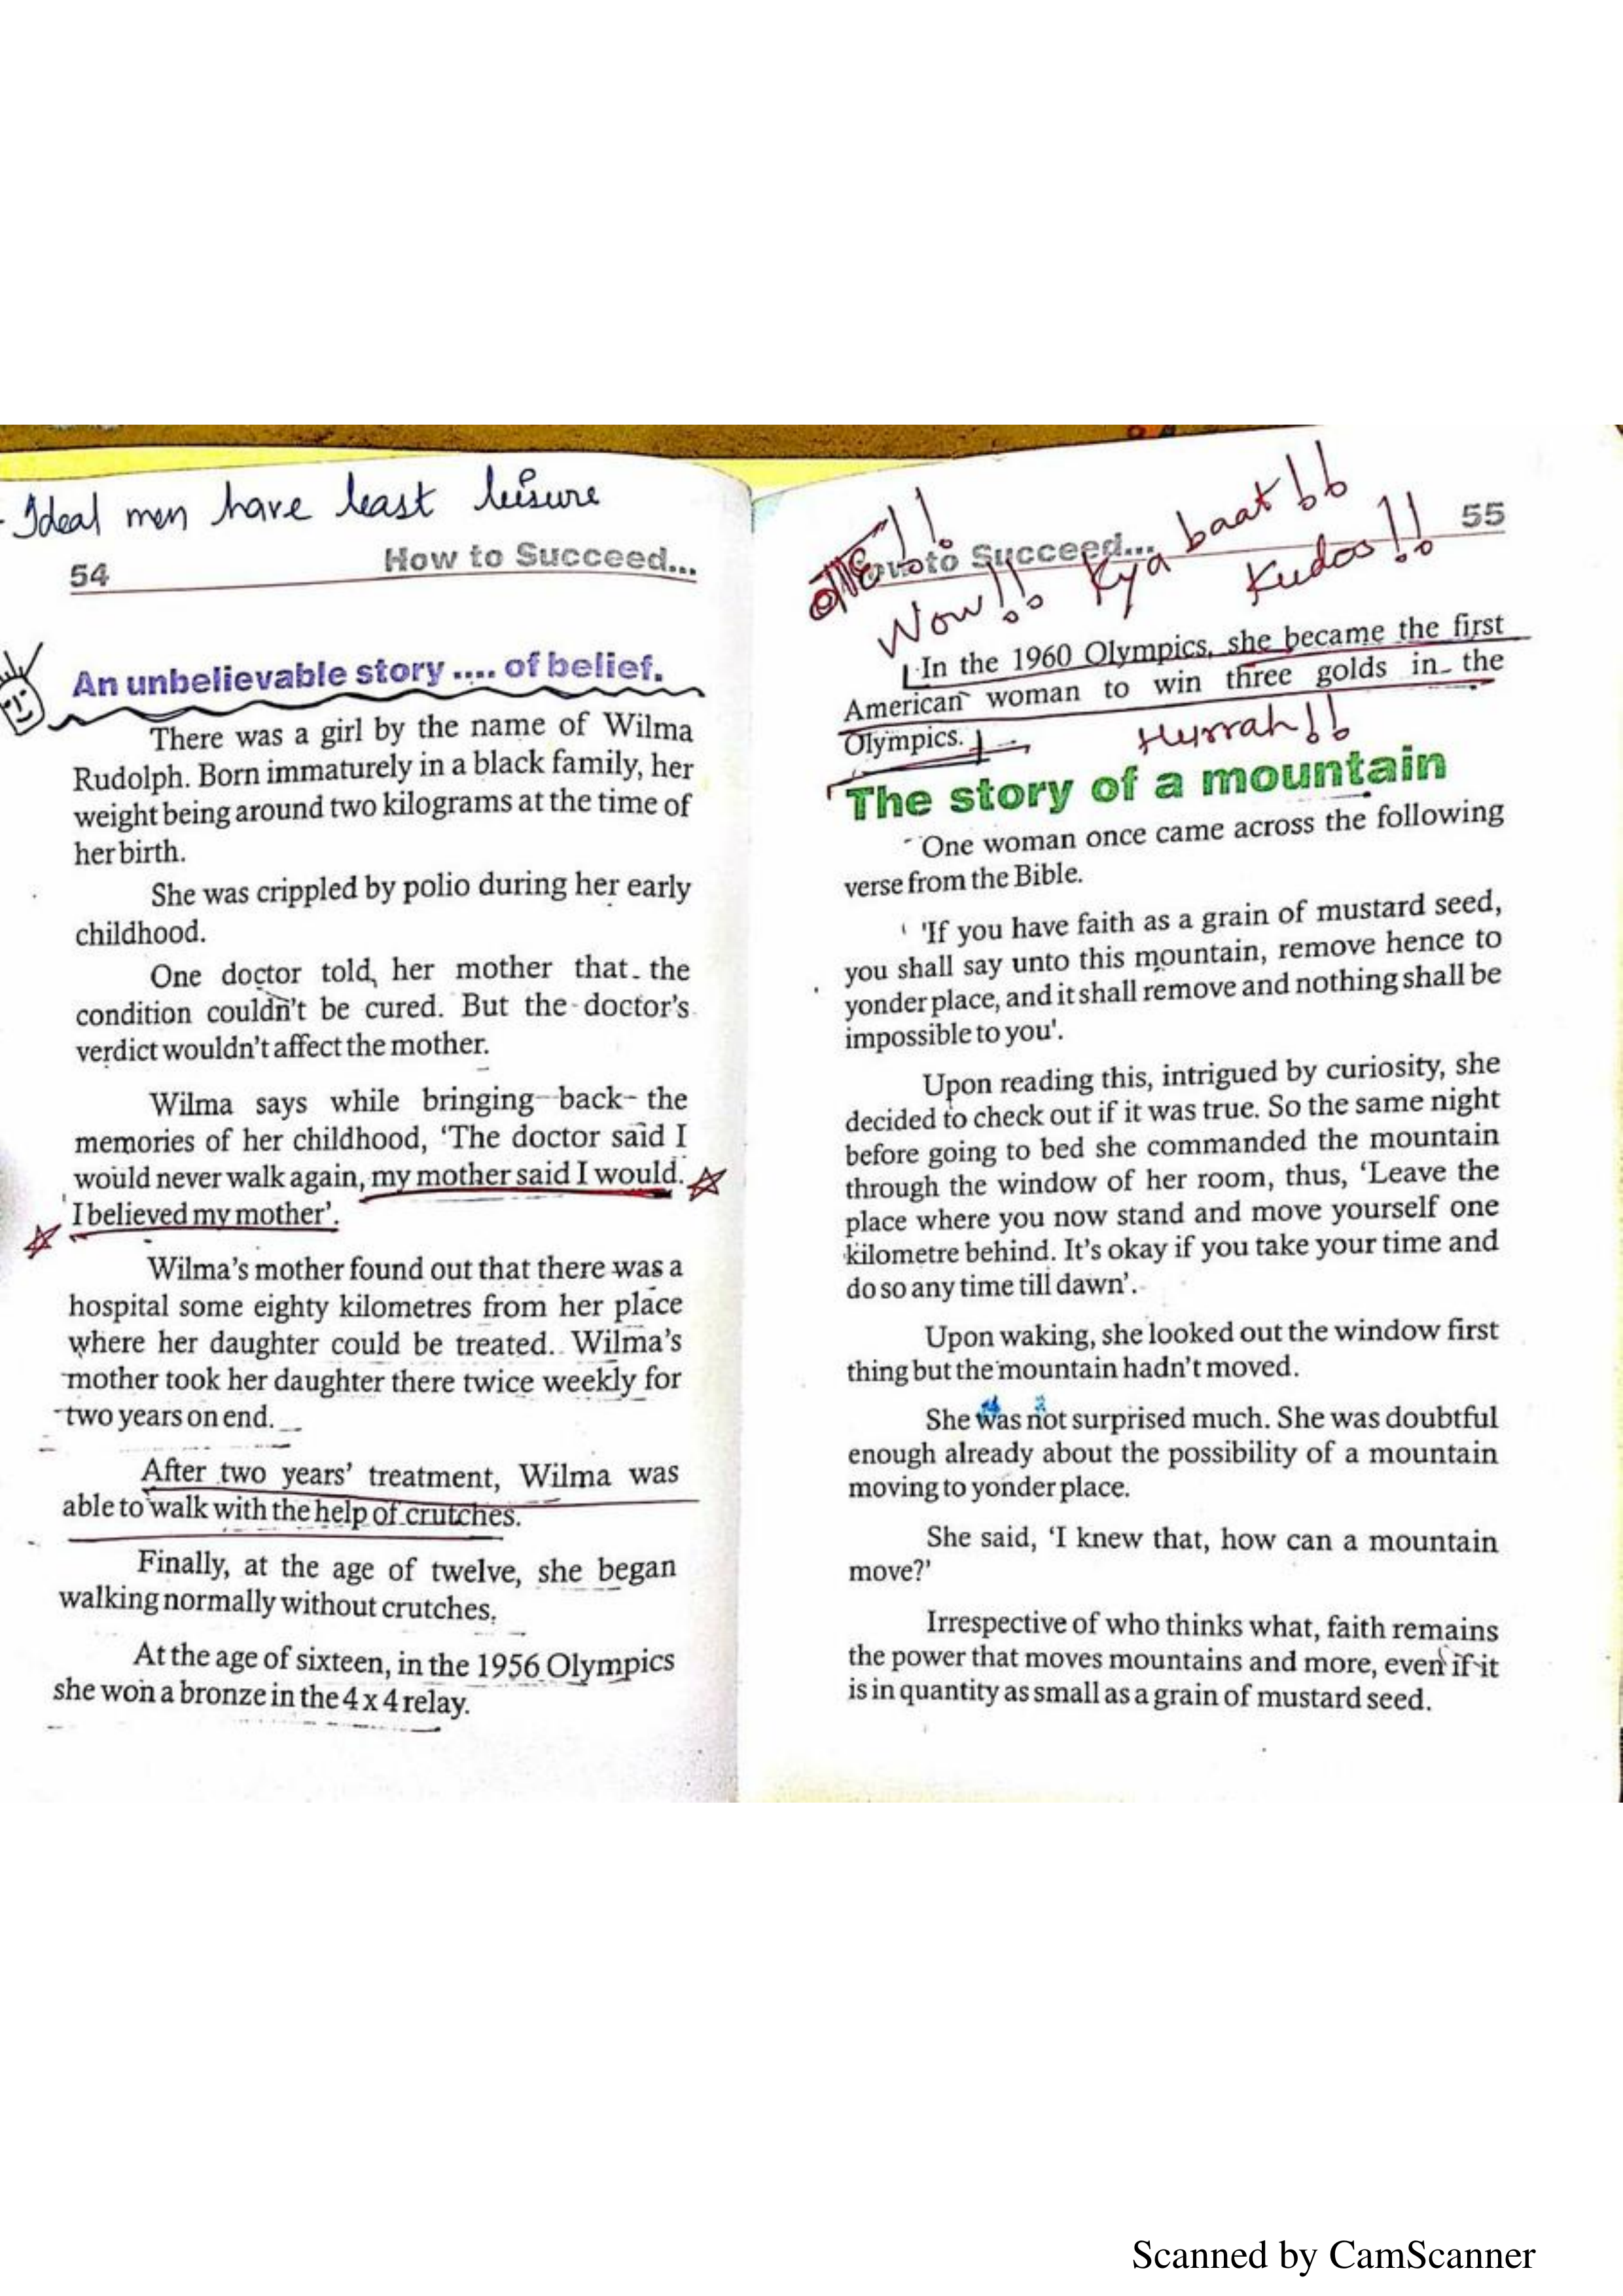 Ideal men have least leisure
54
How to Succeed...
An unbelievable story .... of belief.
There was a girl by the name of Wilma
Rudolph. Born immaturely in a black family, her
weight being around two kilograms at the time of
her birth.
She was crippled by polio during her early
childhood.
One doctor told, her mother that the
condition couldn't be cured. But the doctor's
verdict wouldn't affect the mother.
Wilma says while bringing back the
memories of her childhood, ‘The doctor said I
would never walk again, my mother said I would.
I believed my mother’.
Wilma's mother found out that there was a
hospital some eighty kilometres from her place
where her daughter could be treated. Wilma's
mother took her daughter there twice weekly for
two years on end.
After two years' treatment, Wilma was
able to walk with the help of crutches.
Finally, at the age of twelve, she began
walking normally without crutches.
At the age of sixteen, in the 1956 Olympics
she won a bronze in the 4 x 4 relay.
to Succeed...
55
Wow!! Kya baat!!
Kudos!!
In the 1960 Olympics, she became the first
American woman to win three golds in the
Olympics.
Hurrah!!
The story of a mountain
One woman once came across the following
verse from the Bible.
'If you have faith as a grain of mustard seed,
you shall say unto this mountain, remove hence to
yonder place, and it shall remove and nothing shall be
impossible to you'.
Upon reading this, intrigued by curiosity, she
decided to check out if it was true. So the same night
before going to bed she commanded the mountain
through the window of her room, thus, ‘Leave the
place where you now stand and move yourself one
kilometre behind. It's okay if you take your time and
do so any time till dawn’.
Upon waking, she looked out the window first
thing but the mountain hadn't moved.
She was not surprised much. She was doubtful
enough already about the possibility of a mountain
moving to yonder place.
She said, ‘I knew that, how can a mountain
move?’
Irrespective of who thinks what, faith remains
the power that moves mountains and more, even if it
is in quantity as small as a grain of mustard seed.
Scanned by CamScanner